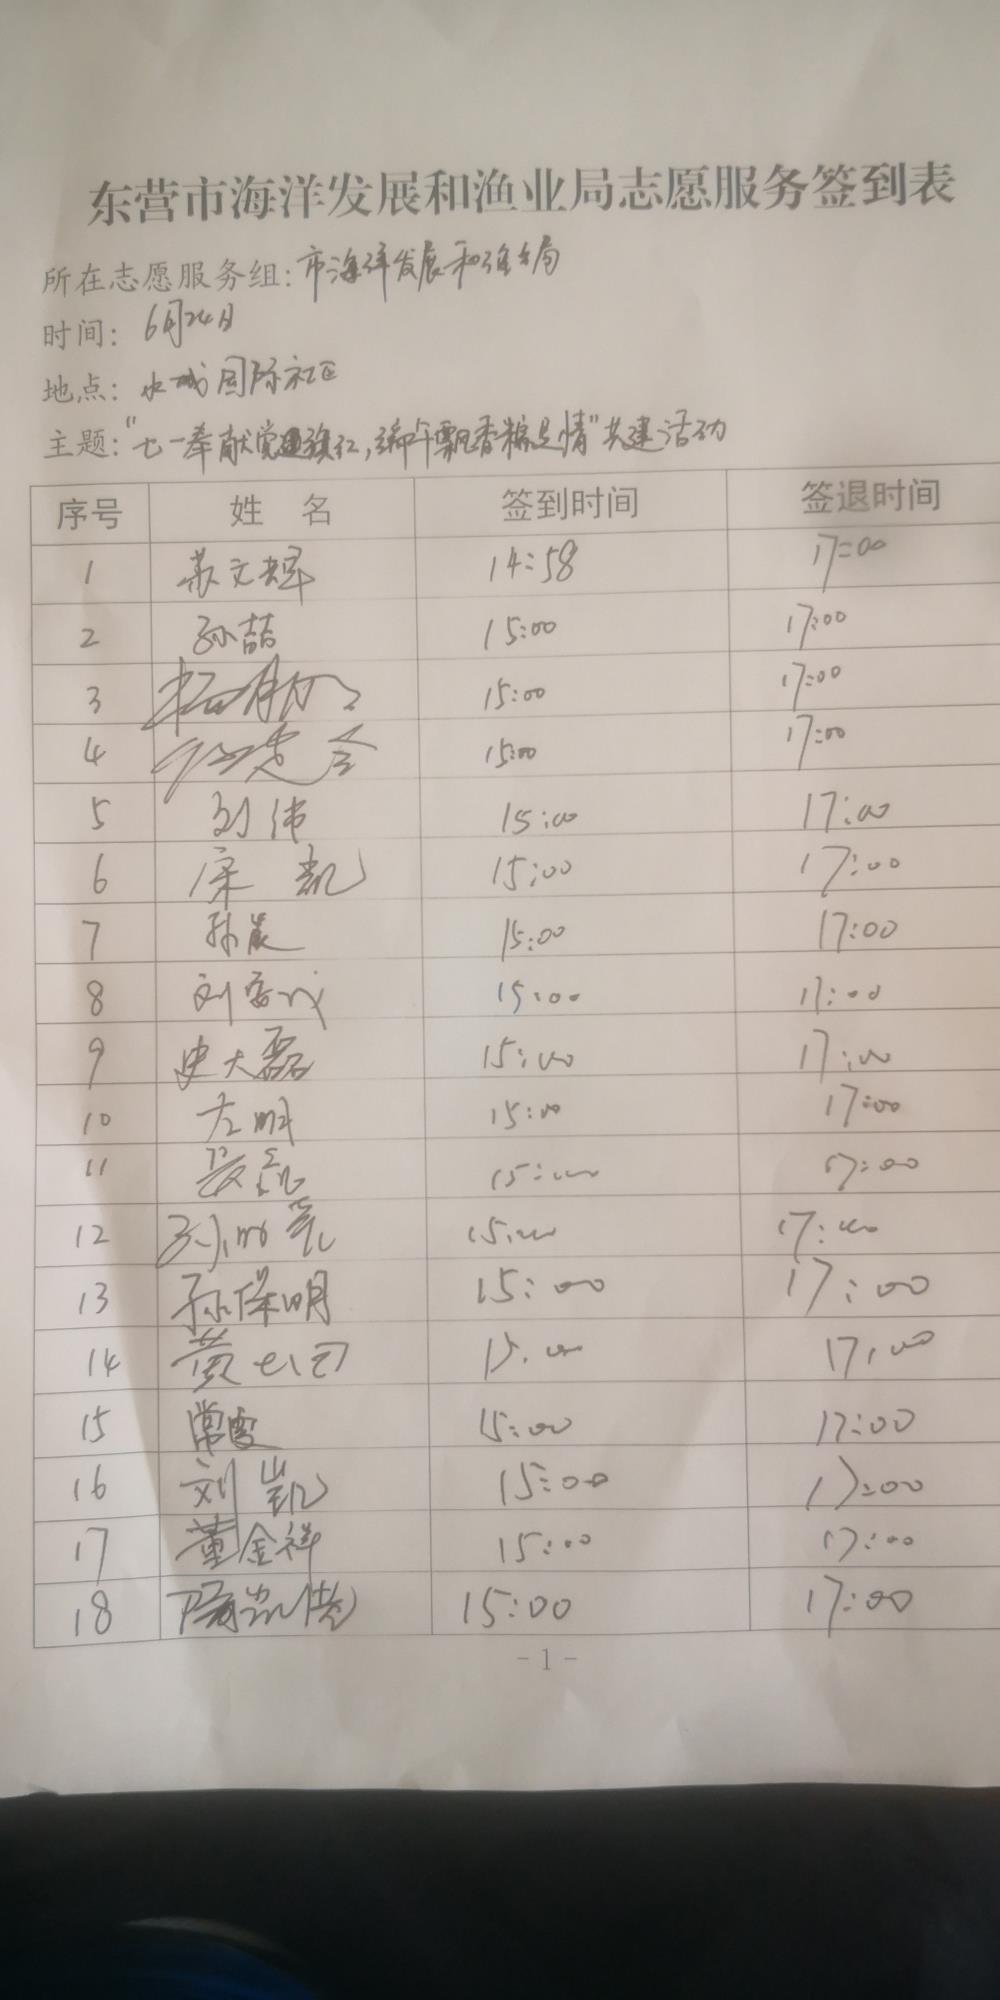 东营市海洋发展和渔业局志愿服务签到表
所在志愿服务组:市海洋发展和渔业局
时间: 6月24日
地点: 水城国际社区
主题:"七一奉献党建旗红,端午飘香粽是情"共建活动
序号 姓 名 签到时间 签退时间
1 苏文辉 14:58 17:00
2 孙喆 15:00 17:00
3 15:00 17:00
4 15:00 17:00
5 刘伟 15:00 17:00
6 宋凯 15:00 17:00
7 孙晨 15:00 17:00
8 刘 15:00 17:00
9 史大磊 15:00 17:00
10 左明 15:00 17:00
11 15:00 17:00
12 15:00 17:00
13 孙保明 15:00 17:00
14 黄 15:00 17:00
15 常雯 15:00 17:00
16 刘凯 15:00 17:00
17 董金祥 15:00 17:00
18 15:00 17:00
- 1 -